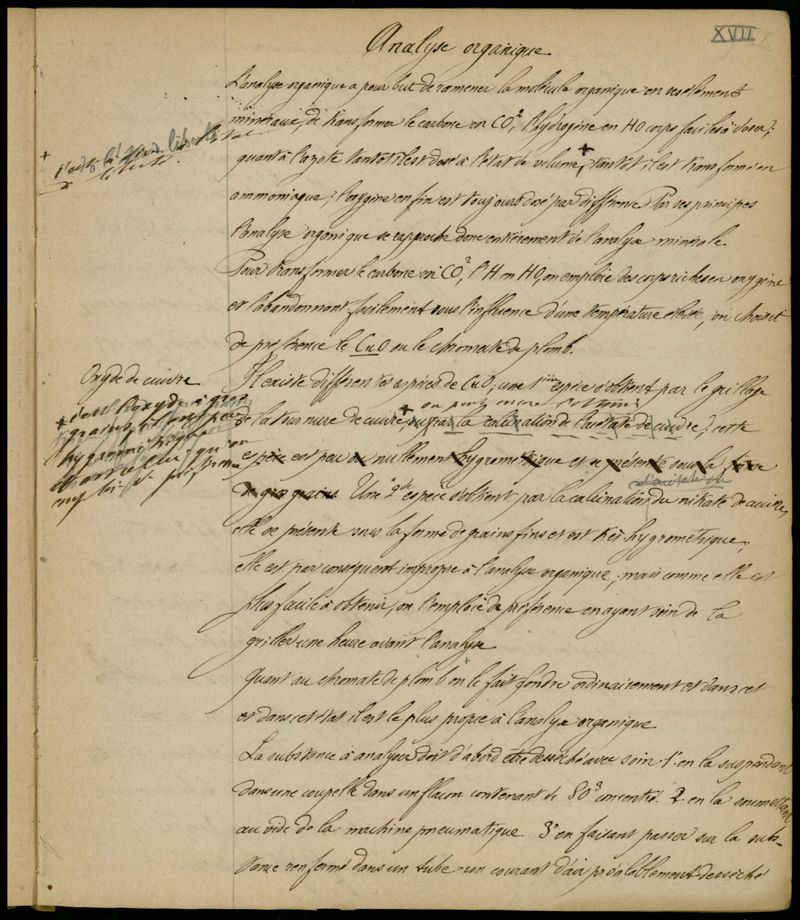 XVII
Analyse organique
L'analyse organique a pour but de ramener la molécule organique en ses éléments
minéraux, de transformer le carbone en CO², l'hydrogène en HO corps faciles à doser;
quant à l'azote tantôt il est dosé à l'état de volume, + tantôt il est transformé en
ammoniaque; l'oxygène enfin est toujours dosé par différence. Par ses principes
l'analyse organique se rapproche donc entièrement de l'analyse minérale
Pour transformer le carbone en CO², l'H en HO, on emploie des corps riches en oxygène
et l'abandonnant facilement sous l'influence d'une température élevée, on choisit
de préférence le CuO ou le chromate de plomb.
Oxyde de cuivre
Il existe différentes espèces de CuO; une 1ère espèce s'obtient par le grillage
on peut encore l'obtenir
de la tournure de cuivre, + ou par la calcination de l'acétate de cuivre; cette
espèce est peu ou nullement hygrométrique et se présente sous la forme
de gros grains. Une 2de espèce s'obtient par la calcination du nitrate de cuivre,
elle se présente sous la forme de grains fins et est très hygrométrique;
elle est par conséquent impropre à l'analyse organique; mais comme elle est
plus facile à obtenir, on l'emploie de préférence en ayant soin de la
griller une heure avant l'analyse
Quant au chromate de plomb on le fait fondre ordinairement et dans cet
et dans cet état il est le plus propre à l'analyse organique
La substance à analyser doit d'abord être desséchée avec soin 1° en la suspendant
dans une coupelle dans un flacon contenant de SO³ concentré. 2° en la soumettant
au vide de la machine pneumatique. 3° en faisant passer sur la subs-
tance renfermée dans un tube un courant d'air préalablement desséché